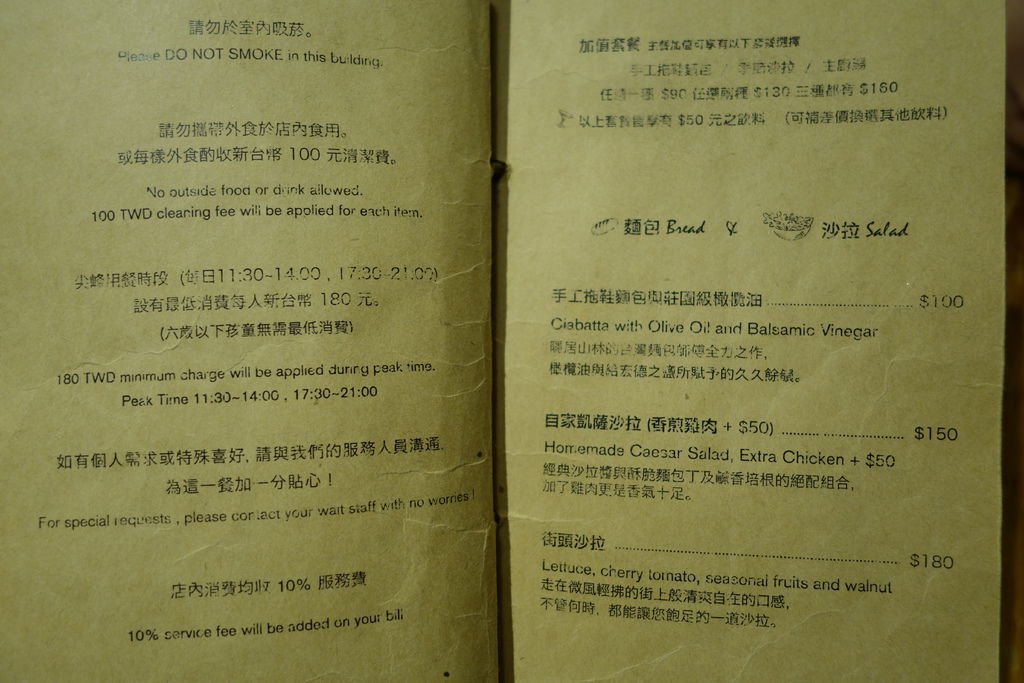 請勿於室內吸菸。
Please DO NOT SMOKE in this building.
請勿攜帶外食於店內食用。
或每樣外食酌收新台幣 100 元清潔費。
No outside food or drink allowed.
100 TWD cleaning fee will be applied for each item.
尖峰用餐時段 (每日11:30~14:00 , 17:30~21:00)
設有最低消費每人新台幣 180 元。
(六歲以下孩童無需最低消費)
180 TWD minimum charge will be applied during peak time.
Peak Time 11:30~14:00 , 17:30~21:00
如有個人需求或特殊喜好, 請與我們的服務人員溝通.
為這一餐加一分貼心！
For special requests , please contact your wait staff with no worries !
店內消費均收 10% 服務費
10% service fee will be added on your bill
加值套餐 主餐加值可享有以下套餐選擇
手工拖鞋麵包 / 季節沙拉 / 主廚湯
任選一種 $90 任選兩種 $130 三種都有 $160
以上套餐皆享有 $50 元之飲料 (可補差價換選其他飲料)
麵包 Bread & 沙拉 Salad
手工拖鞋麵包與莊園級橄欖油 ........................ $100
Ciabatta with Olive Oil and Balsamic Vinegar
隱居山林的台灣麵包師傅全力之作,
橄欖油與給宏德之盞所賦予的久久餘韻。
自家凱薩沙拉 (香煎雞肉 + $50) ........................ $150
Homemade Caesar Salad, Extra Chicken + $50
經典沙拉醬與酥脆麵包丁及鹹香培根的絕配組合,
加了雞肉更是香氣十足。
街頭沙拉 ........................ $180
Lettuce, cherry tomato, seasonal fruits and walnut
走在微風輕拂的街上般清爽自在的口感,
不管何時, 都能讓您飽足的一道沙拉。